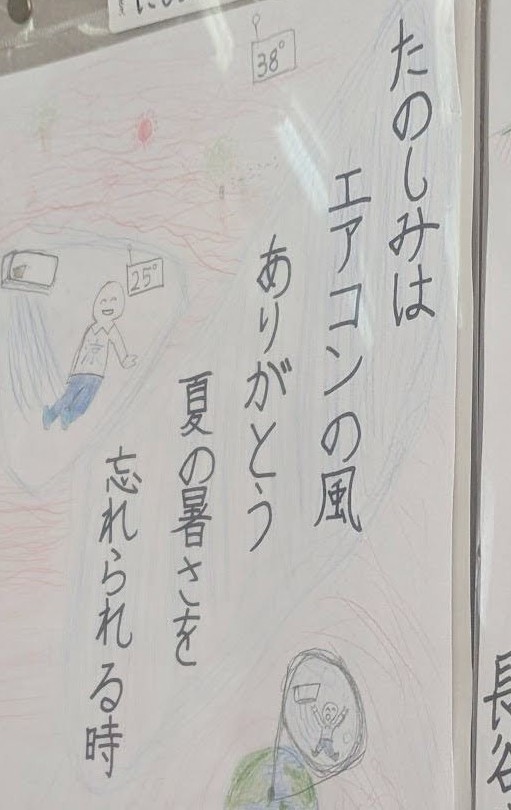 たのしみは
エアコンの風
ありがとう
夏の暑さを
忘れられる時
38°
25°
涼
長谷